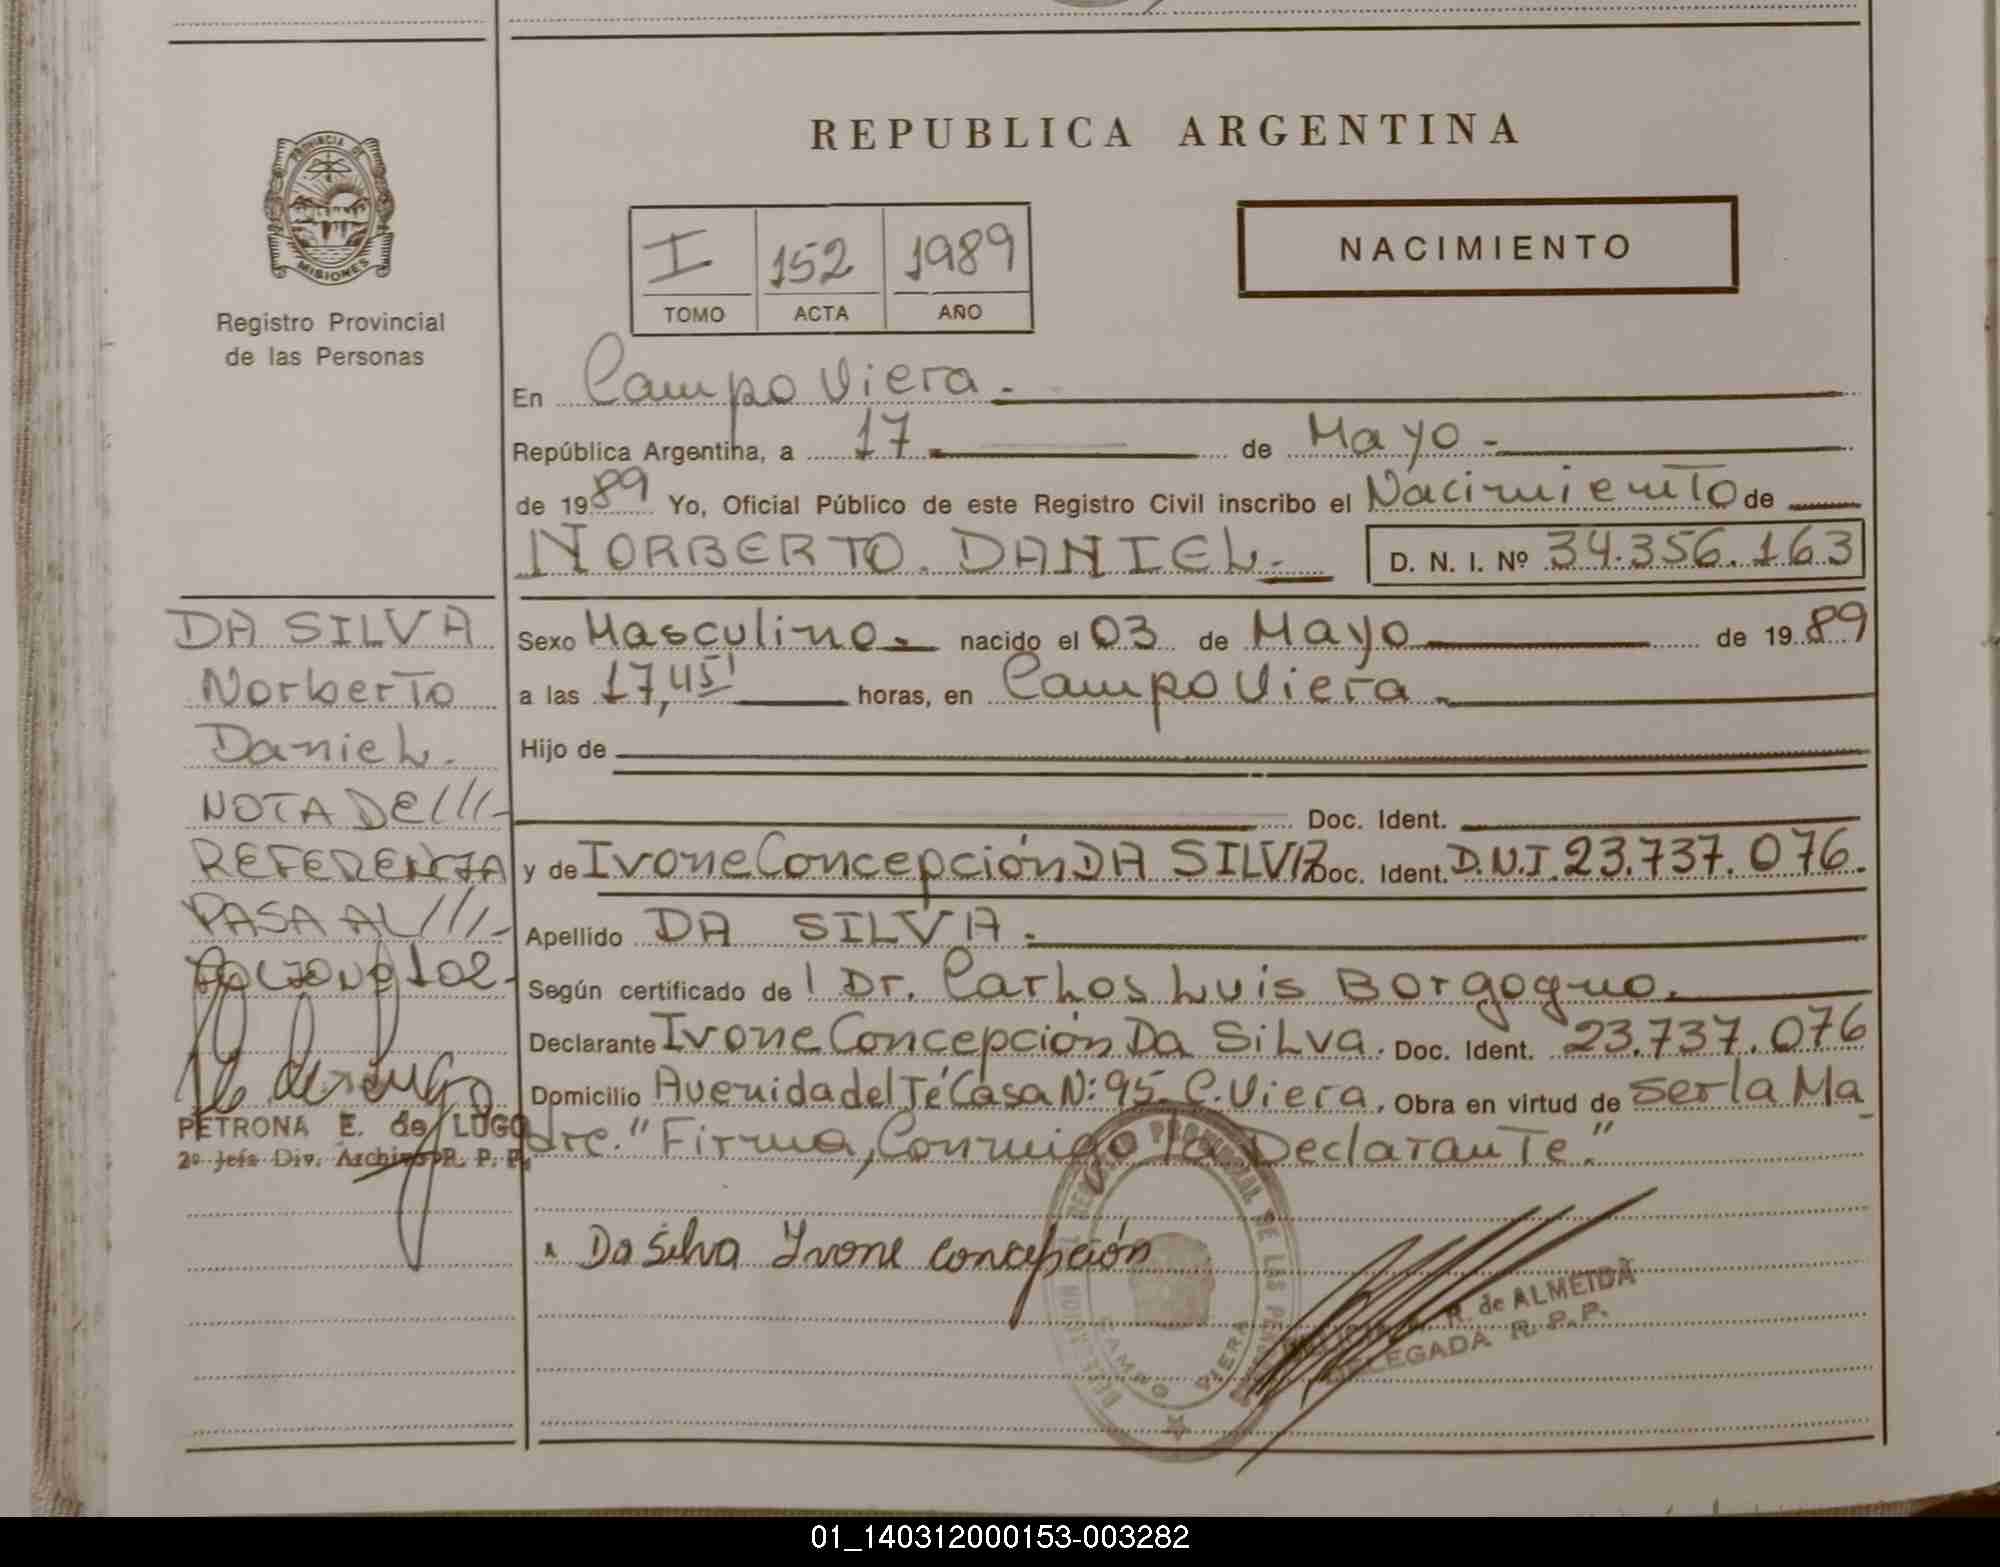 PROVINCIA DE
MISIONES
Registro Provincial
de las Personas
REPUBLICA ARGENTINA
I 152 1989
TOMO ACTA AÑO
NACIMIENTO
En Campo Viera.
República Argentina, a 17 de Mayo
de 1989 Yo, Oficial Público de este Registro Civil inscribo el Nacimiento de
NORBERTO DANIEL. D. N. I. Nº 34.356.163
Sexo Masculino nacido el 03 de Mayo de 1989
a las 17,45' horas, en Campo Viera.
Hijo de
Doc. Ident.
y de Ivone Concepción DA SILVA Doc. Ident. D.N.I. 23.737.076.
Apellido DA SILVA.
Según certificado de l Dr. Carlos Luis Borgogno.
Declarante Ivone Concepción Da Silva. Doc. Ident. 23.737.076
Domicilio Avenida del Té Casa N: 95 C. Viera. Obra en virtud de ser la Ma
dre. "Firma, Conmigo la Declarante."
Da Silva Ivone Concepción
DA SILVA
Norberto
Daniel.
NOTA DE///-
REFERENZA
PASA AL///-
FOLIO Nº 102-
PETRONA E. de LUGO
2º Jefa Div. Archivo R. P. P.
REGISTRO PROVINCIAL DE LAS PERSONAS
CAMPO VIERA
R. de ALMEIDA
DELEGADA R. P. P.
01_140312000153-003282